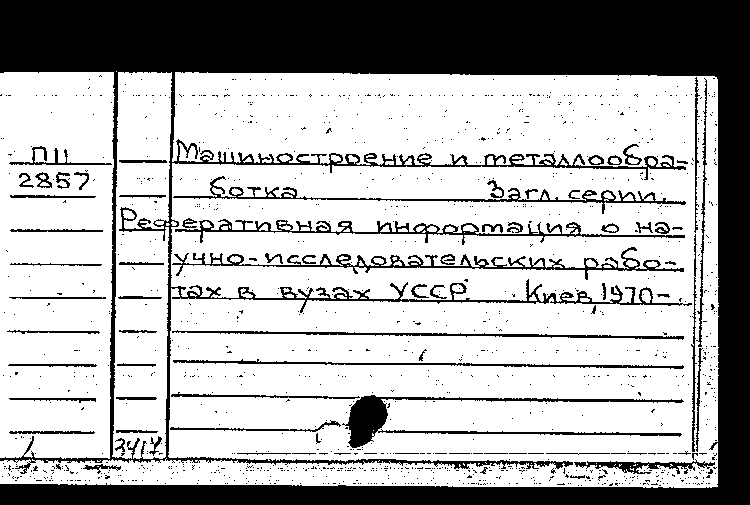 П11 Машиностроение и металлообра-
2857 ботка Загл. серии.
Реферативная информация о на-
учно-исследовательских рабо-
тах в вузах УССР. Киев, 1970-.
3417